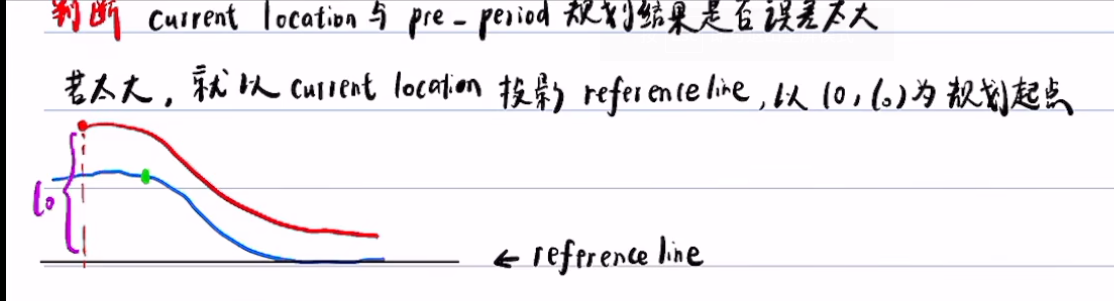 判断 current location 与 pre-period 规划结果是否误差太大
若太大，就以 current location 投影 reference line，以 (0, l₀) 为规划起点
l₀
← reference line